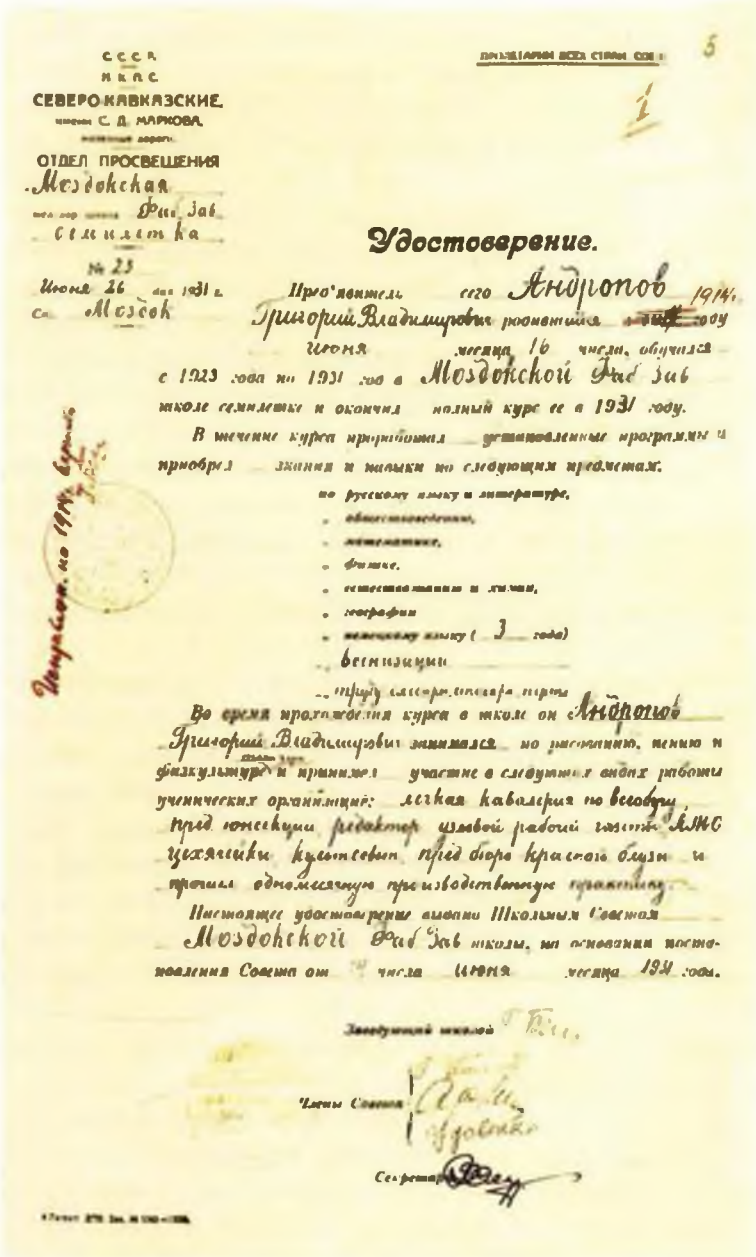 С С С Р.
Н К П С
СЕВЕРО-КАВКАЗСКИЕ,
имени С. Д. МАРКОВА,
дороги
ОТДЕЛ ПРОСВЕЩЕНИЯ
Моздокская
Фаб Зав
семилетка
№ 23
Июня 26 дня 1931 г.
Ст. Моздок
ПРОЛЕТАРИИ ВСЕХ СТРАН, СОЕ
5
1
Удостоверение.
Пред'явитель сего Андропов 1914г.
Григорий Владимирович родившийся в году
июня месяца 16 числа, обучался
с 1923 года по 1931 год в Моздокской Фаб Зав
школе семилетке и окончил полный курс ее в 1931 году.
В течение курса проработал установленные программы и
приобрел знания и навыки по следующим предметам:
по русскому языку и литературе,
„ обществоведению,
„ математике,
„ физике,
„ естествознанию и химии,
„ географии
„ немецкому языку ( 3 года)
„ труду
Во время прохождения курса в школе он Андропов
Григорий Владимирович занимался по рисованию, пению и
физкультуре и принимал участие в следующих видах работы
ученических организаций: легкая кавалерия по всеобучу,
пред юнсекции редактор узловой рабочей газеты
пред бюро Красной блузы и
прошел одномесячную производственную практику.
Настоящее удостоверение выдано Школьным Советом
Моздокской Фаб Зав школы, на основании поста-
новления Совета от числа июня месяца 1931 года.
Исправлен. на 1914г. верить
Заведующий школой
Члены Совета
Секретарь